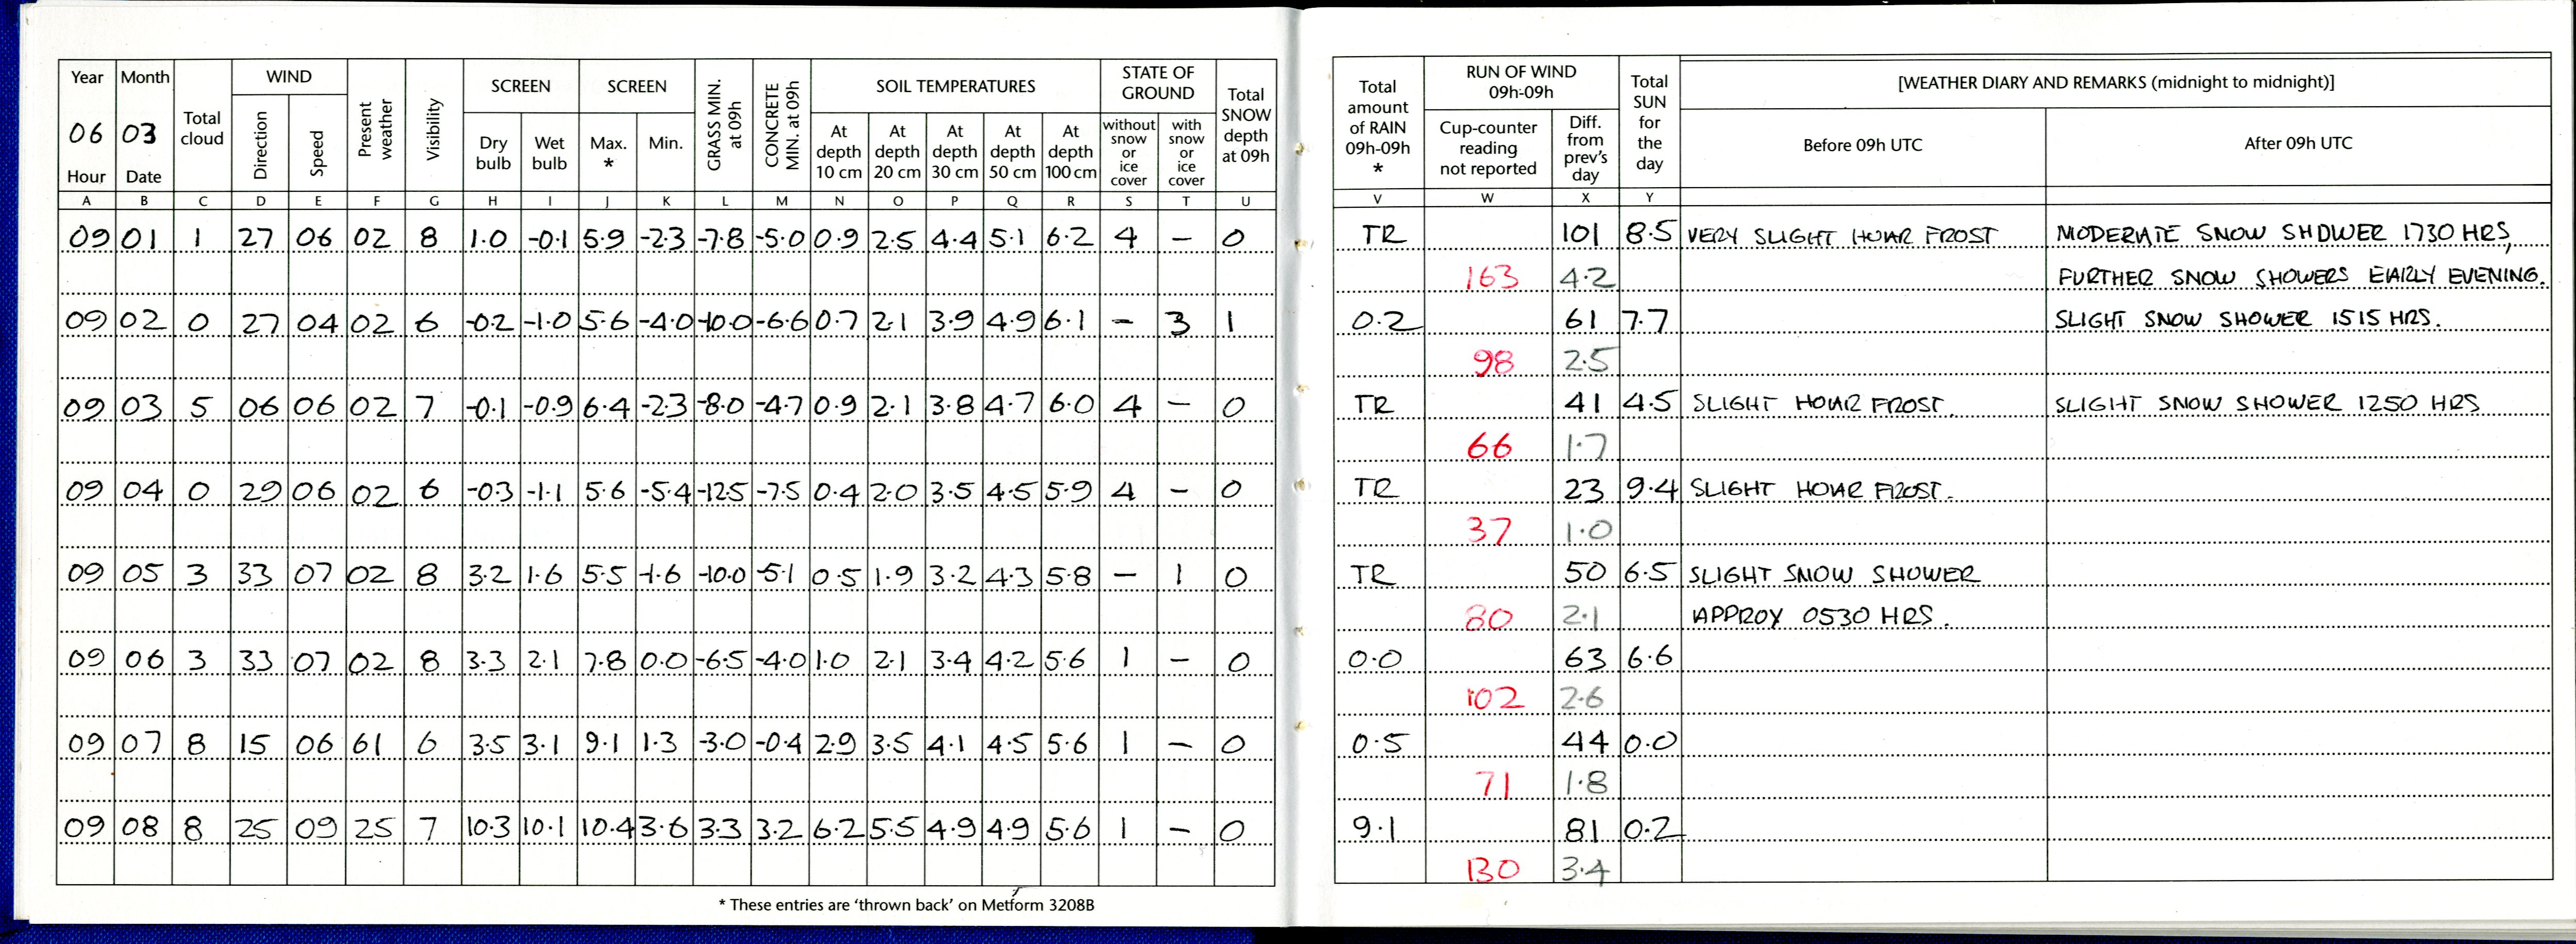 Year Month Total cloud WIND Present weather Visibility SCREEN SCREEN GRASS MIN. at 09h CONCRETE MIN. at 09h SOIL TEMPERATURES STATE OF GROUND Total SNOW depth at 09h
06 03 Direction Speed Dry bulb Wet bulb Max. * Min. At depth 10 cm At depth 20 cm At depth 30 cm At depth 50 cm At depth 100 cm without snow or ice cover with snow or ice cover
Hour Date
A B C D E F G H I J K L M N O P Q R S T U
09 01 1 27 06 02 8 1.0 -0.1 5.9 -2.3 -7.8 -5.0 0.9 2.5 4.4 5.1 6.2 4 – 0
09 02 0 27 04 02 6 -0.2 -1.0 5.6 -4.0 -10.0 -6.6 0.7 2.1 3.9 4.9 6.1 – 3 1
09 03 5 06 06 02 7 -0.1 -0.9 6.4 -2.3 -8.0 -4.7 0.9 2.1 3.8 4.7 6.0 4 – 0
09 04 0 29 06 02 6 -0.3 -1.1 5.6 -5.4 -12.5 -7.5 0.4 2.0 3.5 4.5 5.9 4 – 0
09 05 3 33 07 02 8 3.2 1.6 5.5 -1.6 -10.0 -5.1 0.5 1.9 3.2 4.3 5.8 – 1 0
09 06 3 33 07 02 8 3.3 2.1 7.8 0.0 -6.5 -4.0 1.0 2.1 3.4 4.2 5.6 1 – 0
09 07 8 15 06 61 6 3.5 3.1 9.1 1.3 -3.0 -0.4 2.9 3.5 4.1 4.5 5.6 1 – 0
09 08 8 25 09 25 7 10.3 10.1 10.4 3.6 3.3 3.2 6.2 5.5 4.9 4.9 5.6 1 – 0
* These entries are ‘thrown back’ on Metform 3208B
Total amount of RAIN 09h-09h * RUN OF WIND 09h-09h Total SUN for the day [WEATHER DIARY AND REMARKS (midnight to midnight)]
Cup-counter reading not reported Diff. from prev's day Before 09h UTC After 09h UTC
V W X Y
TR 101 8.5 VERY SLIGHT HOAR FROST MODERATE SNOW SHOWER 1730 HRS,
163 4.2 FURTHER SNOW SHOWERS EARLY EVENING.
0.2 61 7.7 SLIGHT SNOW SHOWER 1515 HRS.
98 2.5
TR 41 4.5 SLIGHT HOAR FROST. SLIGHT SNOW SHOWER 1250 HRS
66 1.7
TR 23 9.4 SLIGHT HOAR FROST.
37 1.0
TR 50 6.5 SLIGHT SNOW SHOWER
80 2.1 APPROX 0530 HRS.
0.0 63 6.6
102 2.6
0.5 44 0.0
71 1.8
9.1 81 0.2
130 3.4